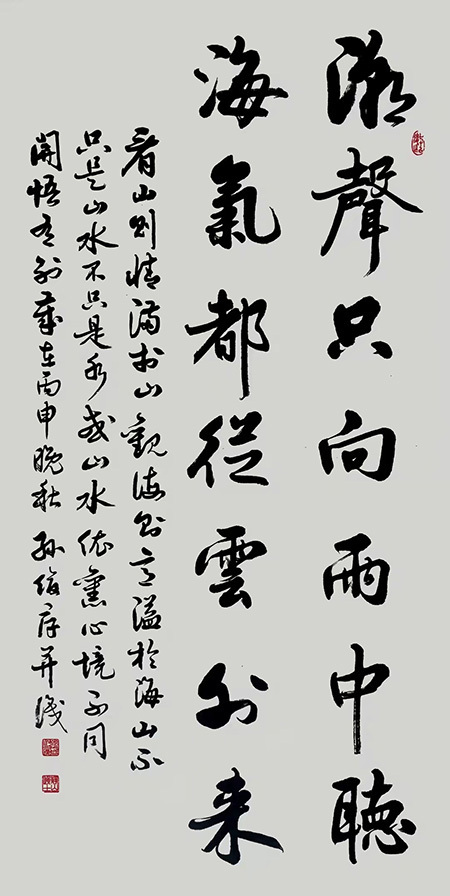 潮聲只向雨中聽
海氣都從雲外來
看山則情滿於山觀海則意溢於海山不
只是山水不只是水或山水依舊心境不同
開悟有別歲在丙申晚秋 孫 存并識